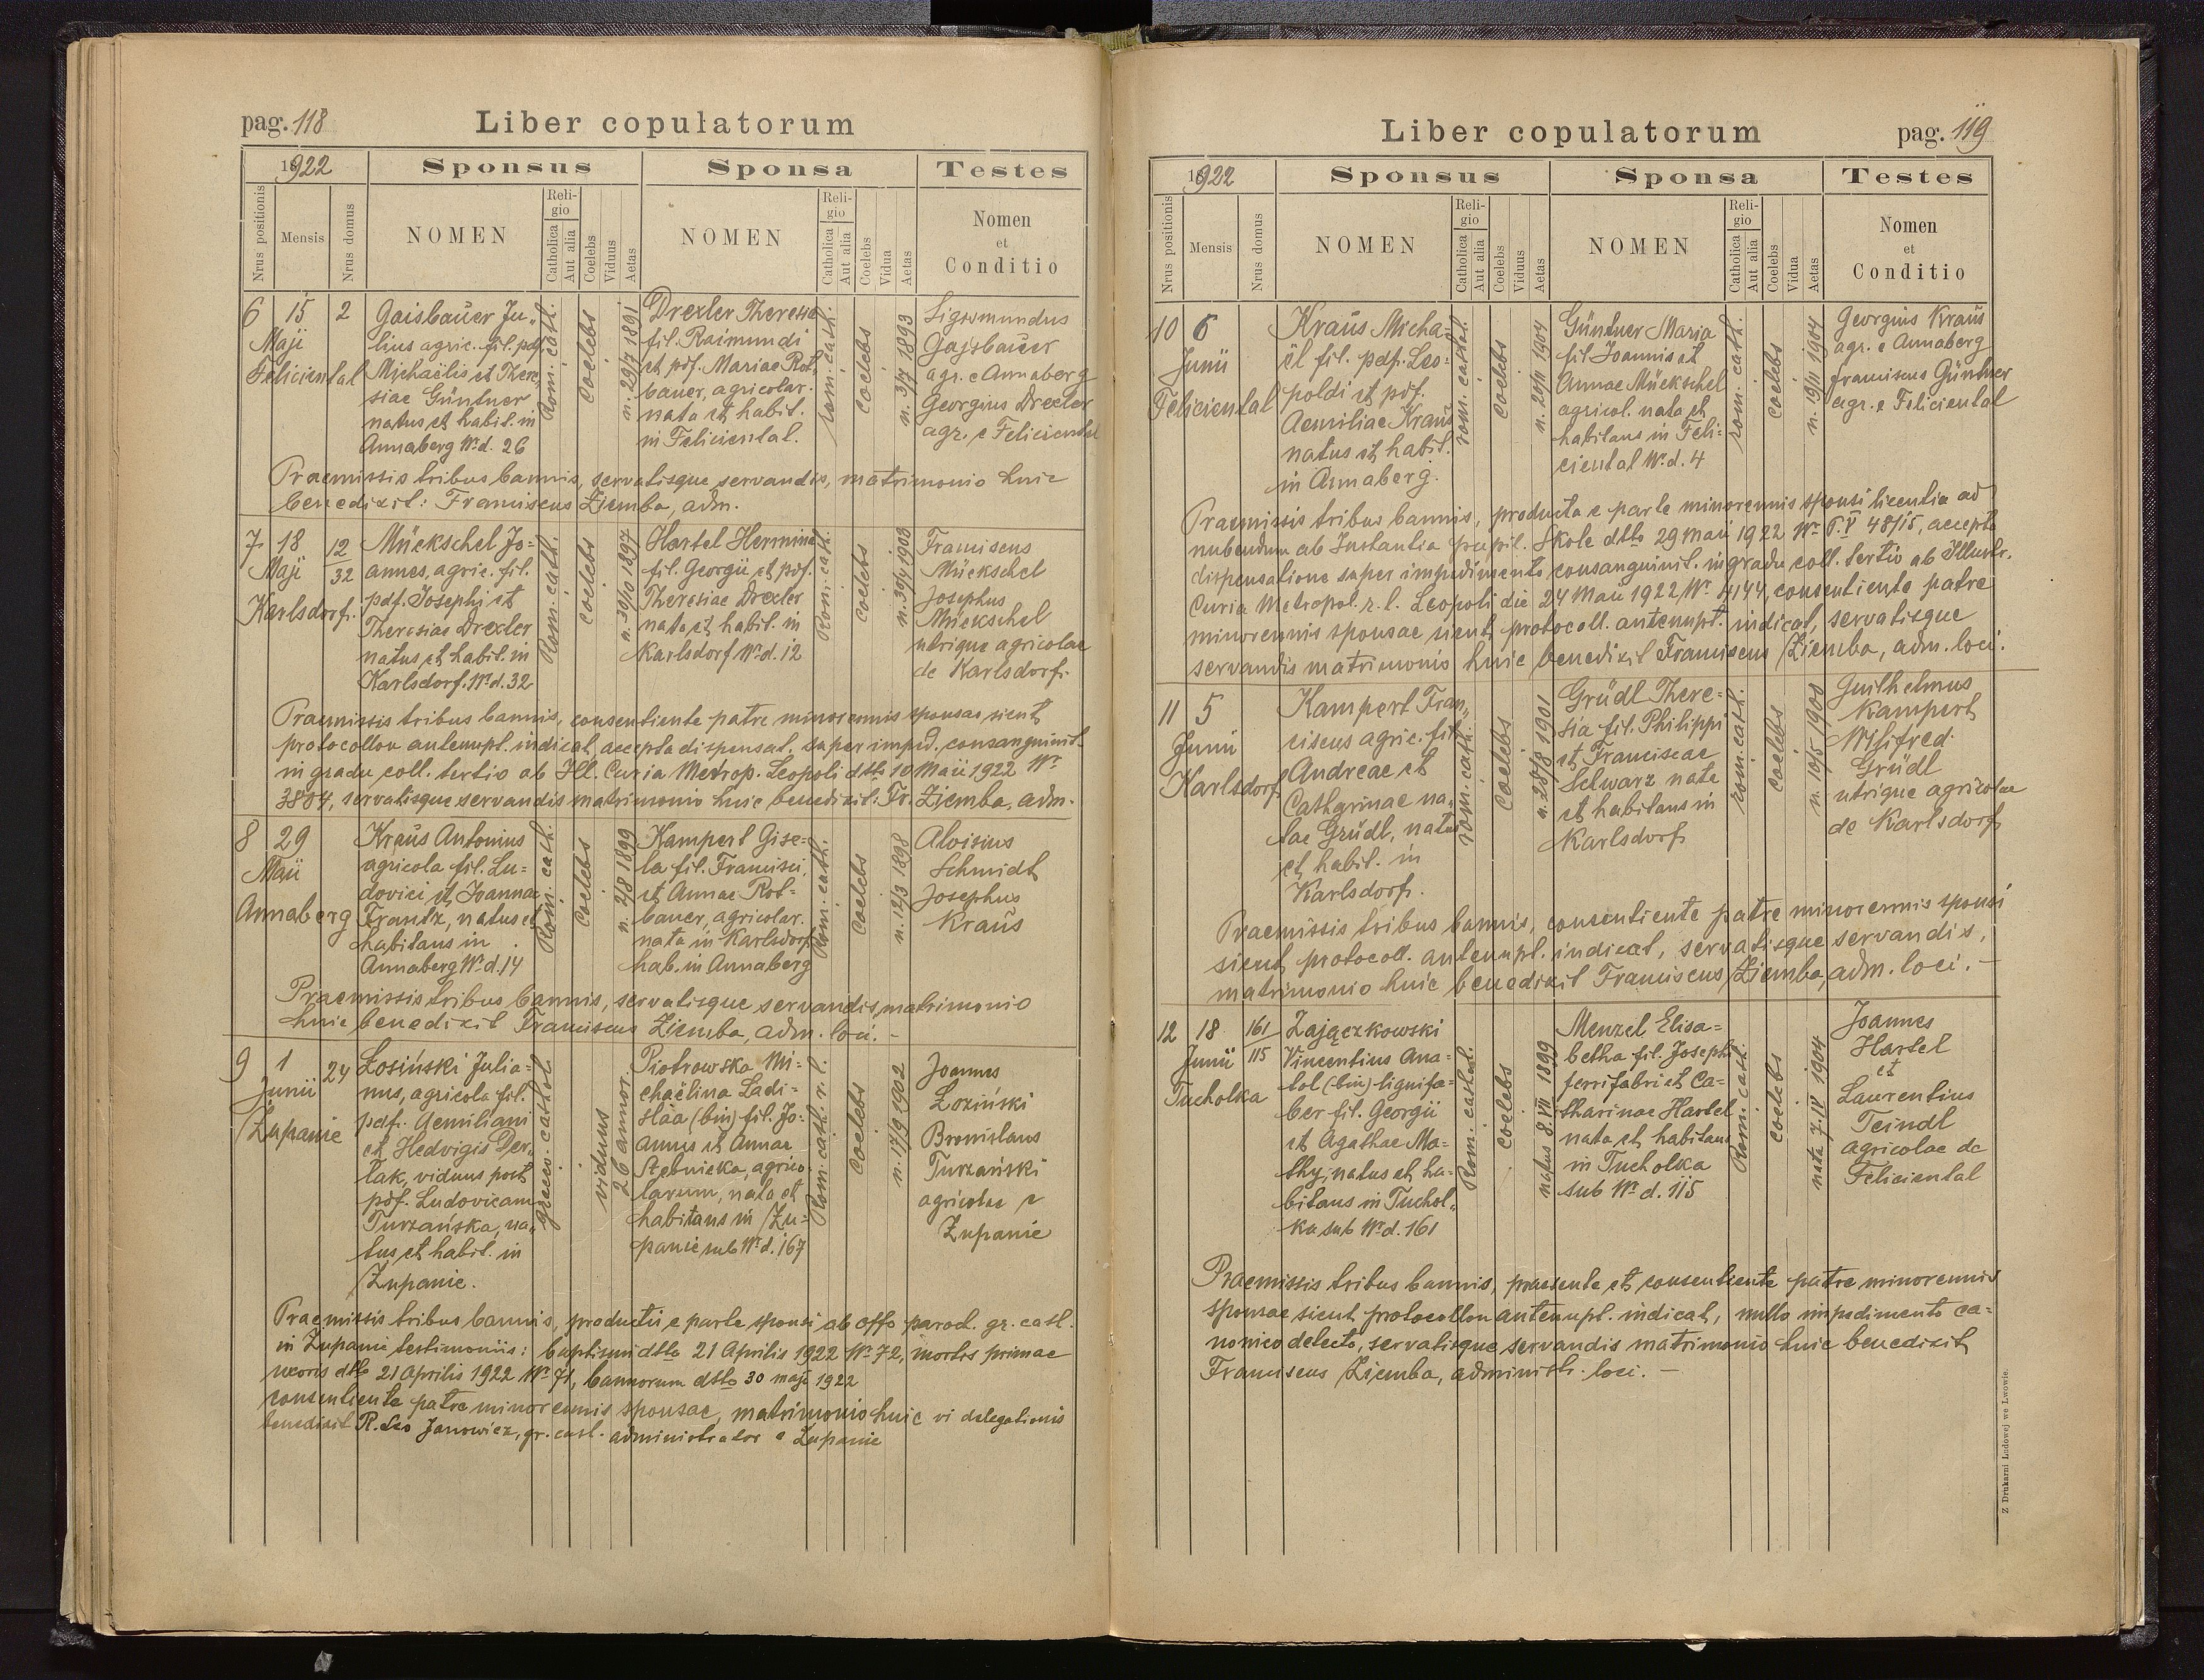 pag. 118
Liber copulatorum
1922
Sponsus
Sponsa
Testes
Nrus positionis
Mensis
Nrus domus
NOMEN
Religio
Catholica
Aut alia
Coelebs
Viduus
Aetas
NOMEN
Religio
Catholica
Aut alia
Coelebs
Vidua
Aetas
Nomen
et
Conditio
6 15 2
Maji
Feliciental
Gaisbauer Ju„
lius agric. fil. pdf.
Michaëlis et There„
siae Güntner
natus et habit. in
Annaberg Nr.d. 26
Rom. cath.
Coelebs
n. 29/7 1891
Drexler Theresia
fil. Raimundi
et pdf. Mariae Rot„
bauer, agricolar.
nata et habit.
in Feliciental.
rom. cath.
coelebs
n. 3/7 1893
Sigismundus
Gajsbauer
agr. e Annaberg
Georgius Drexler
agr. e Feliciental
Praemissis tribus bannis, servatisque servandis, matrimonio huic
benedixit: Franciscus Ziemba, adm.
7 18 12
Maji 32
Karlsdorf.
Mückschel Jo=
annes, agric. fil.
pdf. Josephi et
Theresiae Drexler
natus et habit. in
Karlsdorf. Nr.d. 32
Rom. cath.
Coelebs
n. 30/10 1897
Hartel Hermina
fil. Georgii et pdf.
Theresiae Drexler
nata et habit. in
Karlsdorf Nr.d. 12
Rom. cath.
Coelebs
n. 30/4 1903
Franciscus
Mückschel
Josephus
Mückschel
utrique agricolae
de Karlsdorf.
Praemissis tribus bannis, consentiente patre minorennis sponsae, sicut
protocollon antenupt. indicat, accepta dispensat. super imped. consanguinit.
in gradu coll. tertio ab Ill. Curia Metrop. Leopoli dtto 10 Maii 1922 Nr
3804, servatisque servandis matrimonio huic benedixit: Fr. Ziemba, adm.
8 29
Maii
Annaberg
Kraus Antonius
agricola fil. Lu=
dovici et Joannae
Frantz, natus et
habitans in
Annaberg Nr.d. 14
Rom. cath.
Coelebs
n. 2/8 1899
Kampert Gise=
la fil. Francisci
et Annae Rot=
bauer, agricolar.
nata in Karlsdorf
hab. in Annaberg
Rom. cath.
Coelebs
n. 12/3 1898
Aloisius
Schmidt
Josephus
Kraus
Praemissis tribus bannis, servatisque servandis matrimonio
huic benedixit Franciscus Ziemba, adm. loci. –
9 1 24
Junii
Żupanie
Łosiński Julia=
nus, agricola fil.
pdf. Aemiliani
et Hedvigis Der„
lak, viduus post
pdf. Ludovicam
Turzańska, na„
tus et habit. in
Żupanie.
graeco. cathol.
viduus
26 annor.
Piotrowska Mi=
chaëlina Ladi=
slaa (bin) fil. Jo=
annis et Annae
Stebnicka, agrico„
larum, nata et
habitans in Żu=
panie sub Nr.d. 167
Rom. cath. r. l.
Coelebs
n. 17/9 1902
Joannes
Łoziński
Bronislaus
Turzański
agricolae e
Żupanie
Praemissis tribus bannis, productis e parte sponsi ab offo paroch. gr. cath.
in Żupanie testimoniis: baptismi dtto 21 Aprilis 1922 Nr 72, mortis primae
uxoris dtto 21 Aprilis 1922 Nr 71, bannorum dtto 30 maji 1922
consentiente patre minorennis sponsae, matrimonio huic vi delegationis
benedixit R. Leo Janowicz, gr. cath. administrator e Żupanie
Liber copulatorum
pag. 119
1922
Sponsus
Sponsa
Testes
Nrus positionis
Mensis
Nrus domus
NOMEN
Religio
Catholica
Aut alia
Coelebs
Viduus
Aetas
NOMEN
Religio
Catholica
Aut alia
Coelebs
Vidua
Aetas
Nomen
et
Conditio
10 6
Junii
Feliciental
Kraus Micha„
ël fil. pdf. Leo=
poldi et pdf.
Aemiliae Kraus
natus et habit.
in Annaberg.
rom. cathol.
Coelebs
1904
Güntner Maria
fil. Joannis et
Annae Mückschel
agricol. nata et
habitans in Feli=
ciental Nr.d. 4
rom. cath.
Coelebs
n. 19/11 1904
Georgius Kraus
agr. e Annaberg
Franciscus Güntner
agr. e Feliciental
Praemissis tribus bannis, producta e parte minorennis sponsi licentia ad
nubendum ab Instantia pupil. Skole dtto 29 Maii 1922 Nr P.V 48/15, accepta
dispensatione super impedimento consanguinit. in gradu coll. tertio ab Illustr.
Curia Metropol. r. l. Leopoli die 24 Maii 1922, Nr 4144, consentiente patre
minorennis sponsae sicut protocoll. antenupt. indicat, servatisque
servandis matrimonio huic benedixit Franciscus Ziemba, adm. loci.
11 5
Junii
Karlsdorf
Kampert Fran„
ciscus agric. fil.
Andreae et
Catharinae na„
tae Grüdl, natus
et habit. in
Karlsdorf.
rom. cath.
Coelebs
n. 28/8 1901
Grüdl There=
sia fil. Philippi
et Franciscae
Schwarz nata
et habitans in
Karlsdorf
rom. cath.
Coelebs
n. 10/5 1900
Guilhelmus
Kampert
Wilifred
Grüdl
utrique agricolae
de Karlsdorf
Praemissis tribus bannis, consentiente patre minorennis sponsi
sicut protocoll. antenupt. indicat, servatisque servandis,
matrimonio huic benedixit Franciscus Ziemba, adm. loci. –
12 18 161
Junii 115
Tucholka
Zajączkowski
Vincentius Ana=
tol (bin) lignifa=
ber fil. Georgii
et Agathae Ma=
thy, natus et ha=
bitans in Tuchol„
ka sub Nr.d. 161
Rom. cathol.
Coelebs
natus 8.VII 1899
Menzel Elisa=
betha fil. Josephi
ferrifabri et Ca=
tharinae Hartel
nata et habitans
in Tucholka
sub Nr d. 115
Rom. cath.
Coelebs
nata 7.IV 1904
Joannes
Hartel
et
Laurentius
Teindl
agricolae de
Feliciental
Praemissis tribus bannis, praesente et consentiente patre minorennis
sponsae sicut protocollon antenupt. indicat, nullo impedimento ca=
nonico detecto, servatisque servandis matrimonio huic benedixit
Franciscus Ziemba, administr. loci. –
Z Drukarni Ludowej we Lwowie.